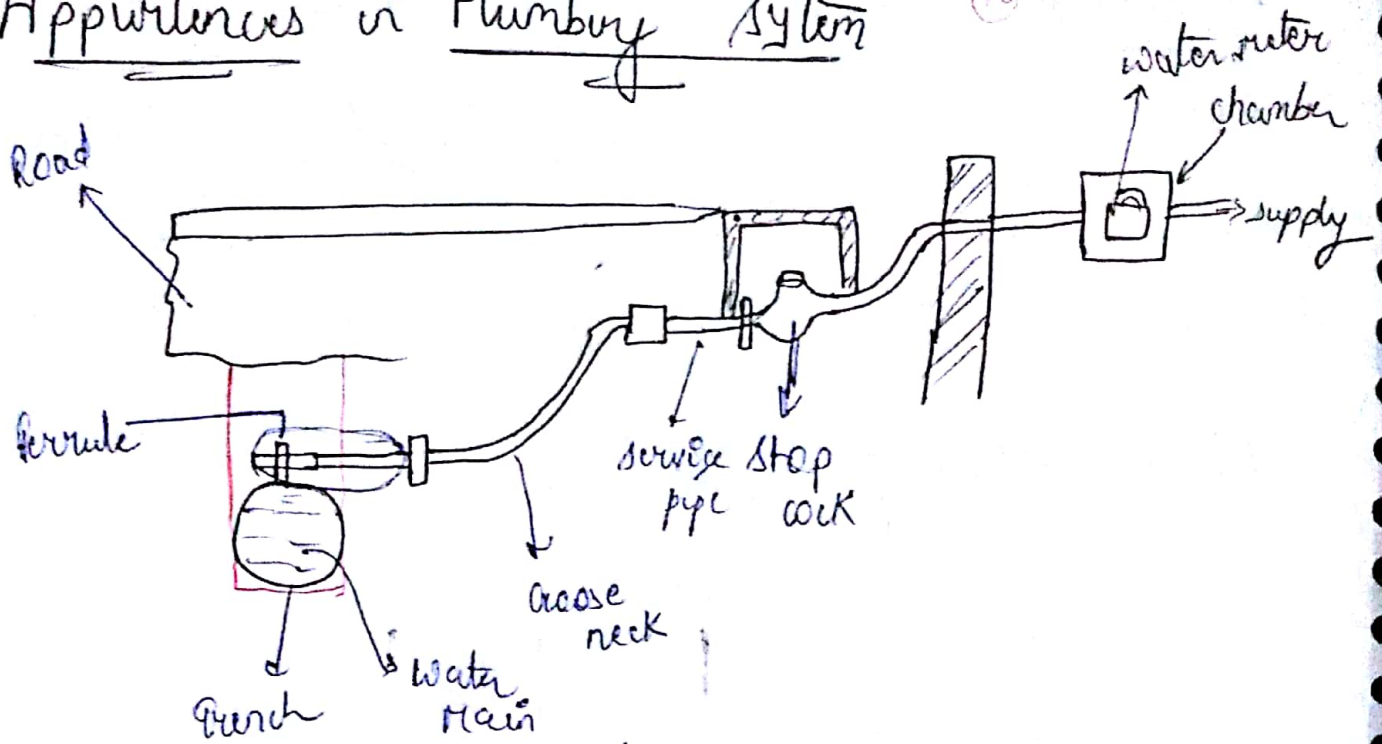 Appurtences in Plumbing Sytem
water meter
chamber
Road
supply
Ferrule
service
pipe
stop
cock
Goose
neck
Water
Main
Trench